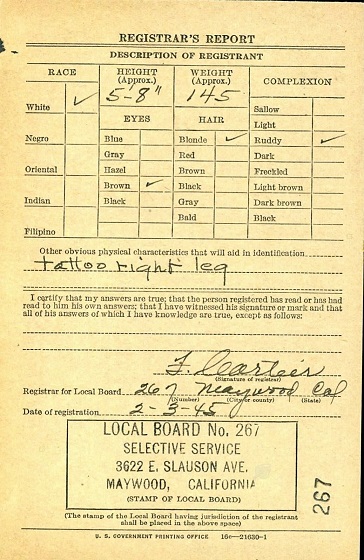 REGISTRAR'S REPORT
DESCRIPTION OF REGISTRANT
RACE
HEIGHT (Approx.)
WEIGHT (Approx.)
COMPLEXION
5-8"
145
White ✓
Sallow
EYES
HAIR
Light
Negro
Blue
Blonde ✓
Ruddy ✓
Gray
Red
Dark
Oriental
Hazel
Brown
Freckled
Brown ✓
Black
Light brown
Indian
Black
Gray
Dark brown
Bald
Black
Filipino
Other obvious physical characteristics that will aid in identification
tattoo right leg
I certify that my answers are true; that the person registered has read or has had
read to him his own answers; that I have witnessed his signature or mark and that
all of his answers of which I have knowledge are true, except as follows:
(Signature of registrar)
Registrar for Local Board 267 Maywood Cal
(Number) (City or county) (State)
Date of registration 2-3-45
LOCAL BOARD No. 267
SELECTIVE SERVICE
3622 E. SLAUSON AVE.
MAYWOOD, CALIFORNIA
(STAMP OF LOCAL BOARD)
(The stamp of the Local Board having jurisdiction of the registrant
shall be placed in the above space)
267
U. S. GOVERNMENT PRINTING OFFICE 16—21630-1